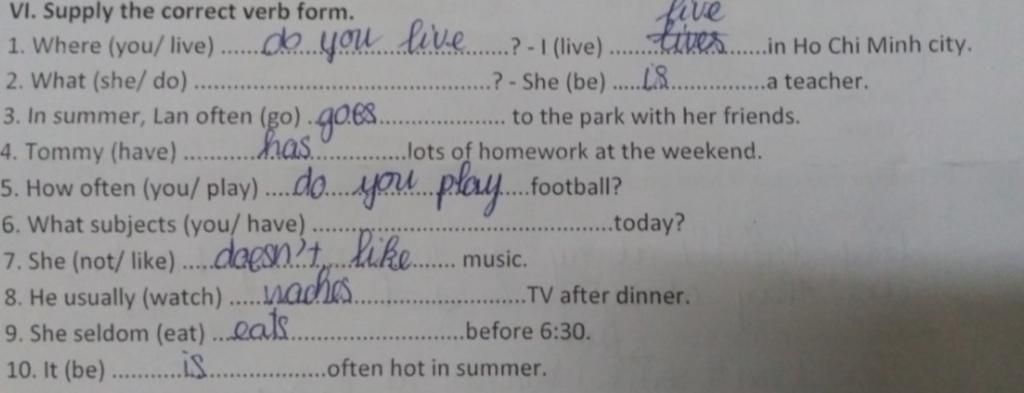 VI. Supply the correct verb form.
live
1. Where (you/ live) ......do you live......? - I (live) ......lives......in Ho Chi Minh city.
2. What (she/ do) ........................................? - She (be) .....is...............a teacher.
3. In summer, Lan often (go) ..goes................... to the park with her friends.
4. Tommy (have) ...........has...............lots of homework at the weekend.
5. How often (you/ play) ....do....you...play....football?
6. What subjects (you/ have) ........................................today?
7. She (not/ like) .....doesn't....like....... music.
8. He usually (watch) .....waches.........................TV after dinner.
9. She seldom (eat) ...eats.........................before 6:30.
10. It (be) ...........is..................often hot in summer.